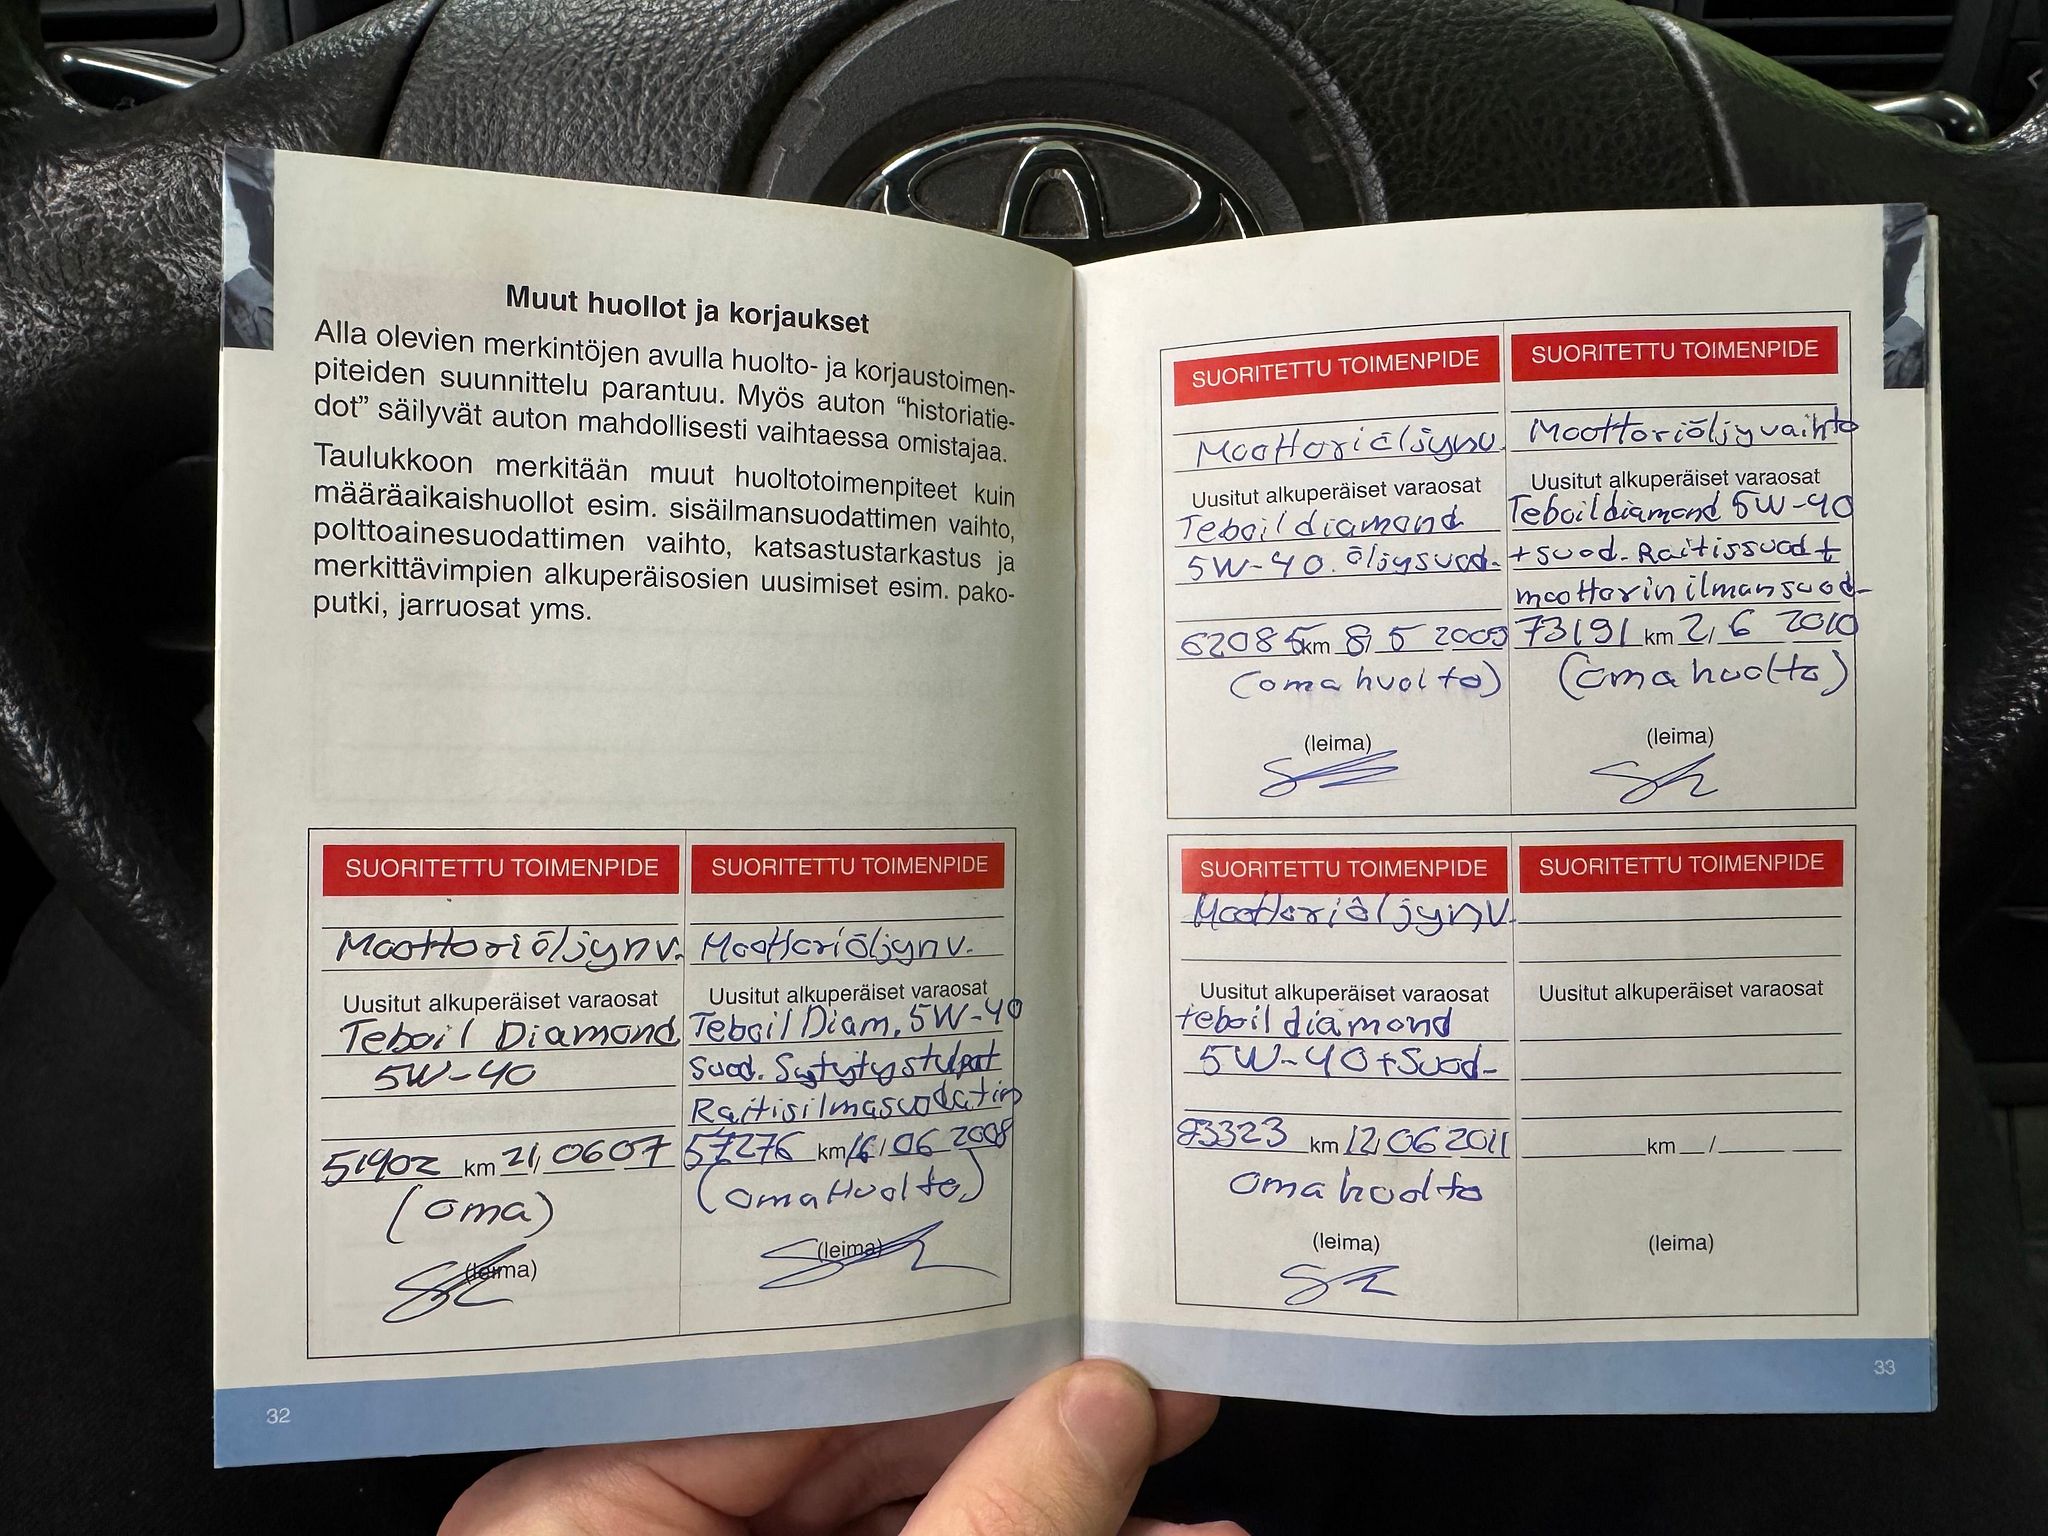 Muut huollot ja korjaukset
Alla olevien merkintöjen avulla huolto- ja korjaustoimen-
piteiden suunnittelu parantuu. Myös auton “historiatie-
dot” säilyvät auton mahdollisesti vaihtaessa omistajaa.
Taulukkoon merkitään muut huoltotoimenpiteet kuin
määräaikaishuollot esim. sisäilmansuodattimen vaihto,
polttoainesuodattimen vaihto, katsastustarkastus ja
merkittävimpien alkuperäisosien uusimiset esim. pako-
putki, jarruosat yms.
SUORITETTU TOIMENPIDE
Moottoriöljynv.
Uusitut alkuperäiset varaosat
Teboil Diamond
5W-40
51902 km 21/0607
(oma)
(leima)
SUORITETTU TOIMENPIDE
Moottoriöljynv.
Uusitut alkuperäiset varaosat
Teboil Diam. 5W-40
Suod. Sytytystulpat
Raitisilmasuodatin
57276 km 16/06 2008
(oma Huolto)
(leima)
32
SUORITETTU TOIMENPIDE
Moottoriöljynv.
Uusitut alkuperäiset varaosat
Teboil diamond
5W-40. öljysuod.
62085 km 8/5 2009
(oma huolto)
(leima)
SUORITETTU TOIMENPIDE
Moottoriöljyvaihto
Uusitut alkuperäiset varaosat
Teboil diamond 5W-40
+ suod. Raitissuod +
moottorin ilmansuod-
73191 km 2/6 2010
(oma huolto)
(leima)
SUORITETTU TOIMENPIDE
Moottoriöljynv.
Uusitut alkuperäiset varaosat
teboil diamond
5W-40 + Suod-
km 12/06 2011
oma huolto
(leima)
SUORITETTU TOIMENPIDE
Uusitut alkuperäiset varaosat
km /
(leima)
33